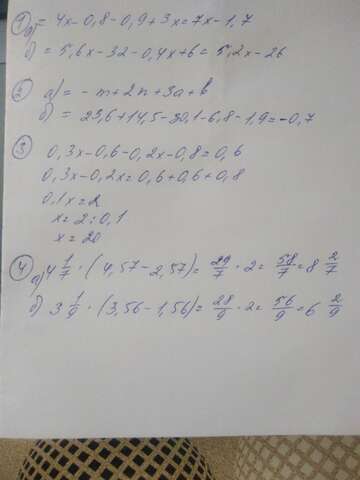 1) а) = 4x - 0,8 - 0,9 + 3x = 7x - 1,7
б) = 5,6x - 32 - 0,4x + 6 = 5,2x - 26
2) а) = - m + 2n + 3a + b
б) = 23,6 + 14,5 - 30,1 - 6,8 - 1,9 = -0,7
3) 0,3x - 0,6 - 0,2x - 0,8 = 0,6
0,3x - 0,2x = 0,6 + 0,6 + 0,8
0,1x = 2
x = 2 : 0,1
x = 20
4) а) 4 1/7 · (4,57 - 2,57) = 29/7 · 2 = 58/7 = 8 2/7
б) 3 1/9 · (3,56 - 1,56) = 28/9 · 2 = 56/9 = 6 2/9